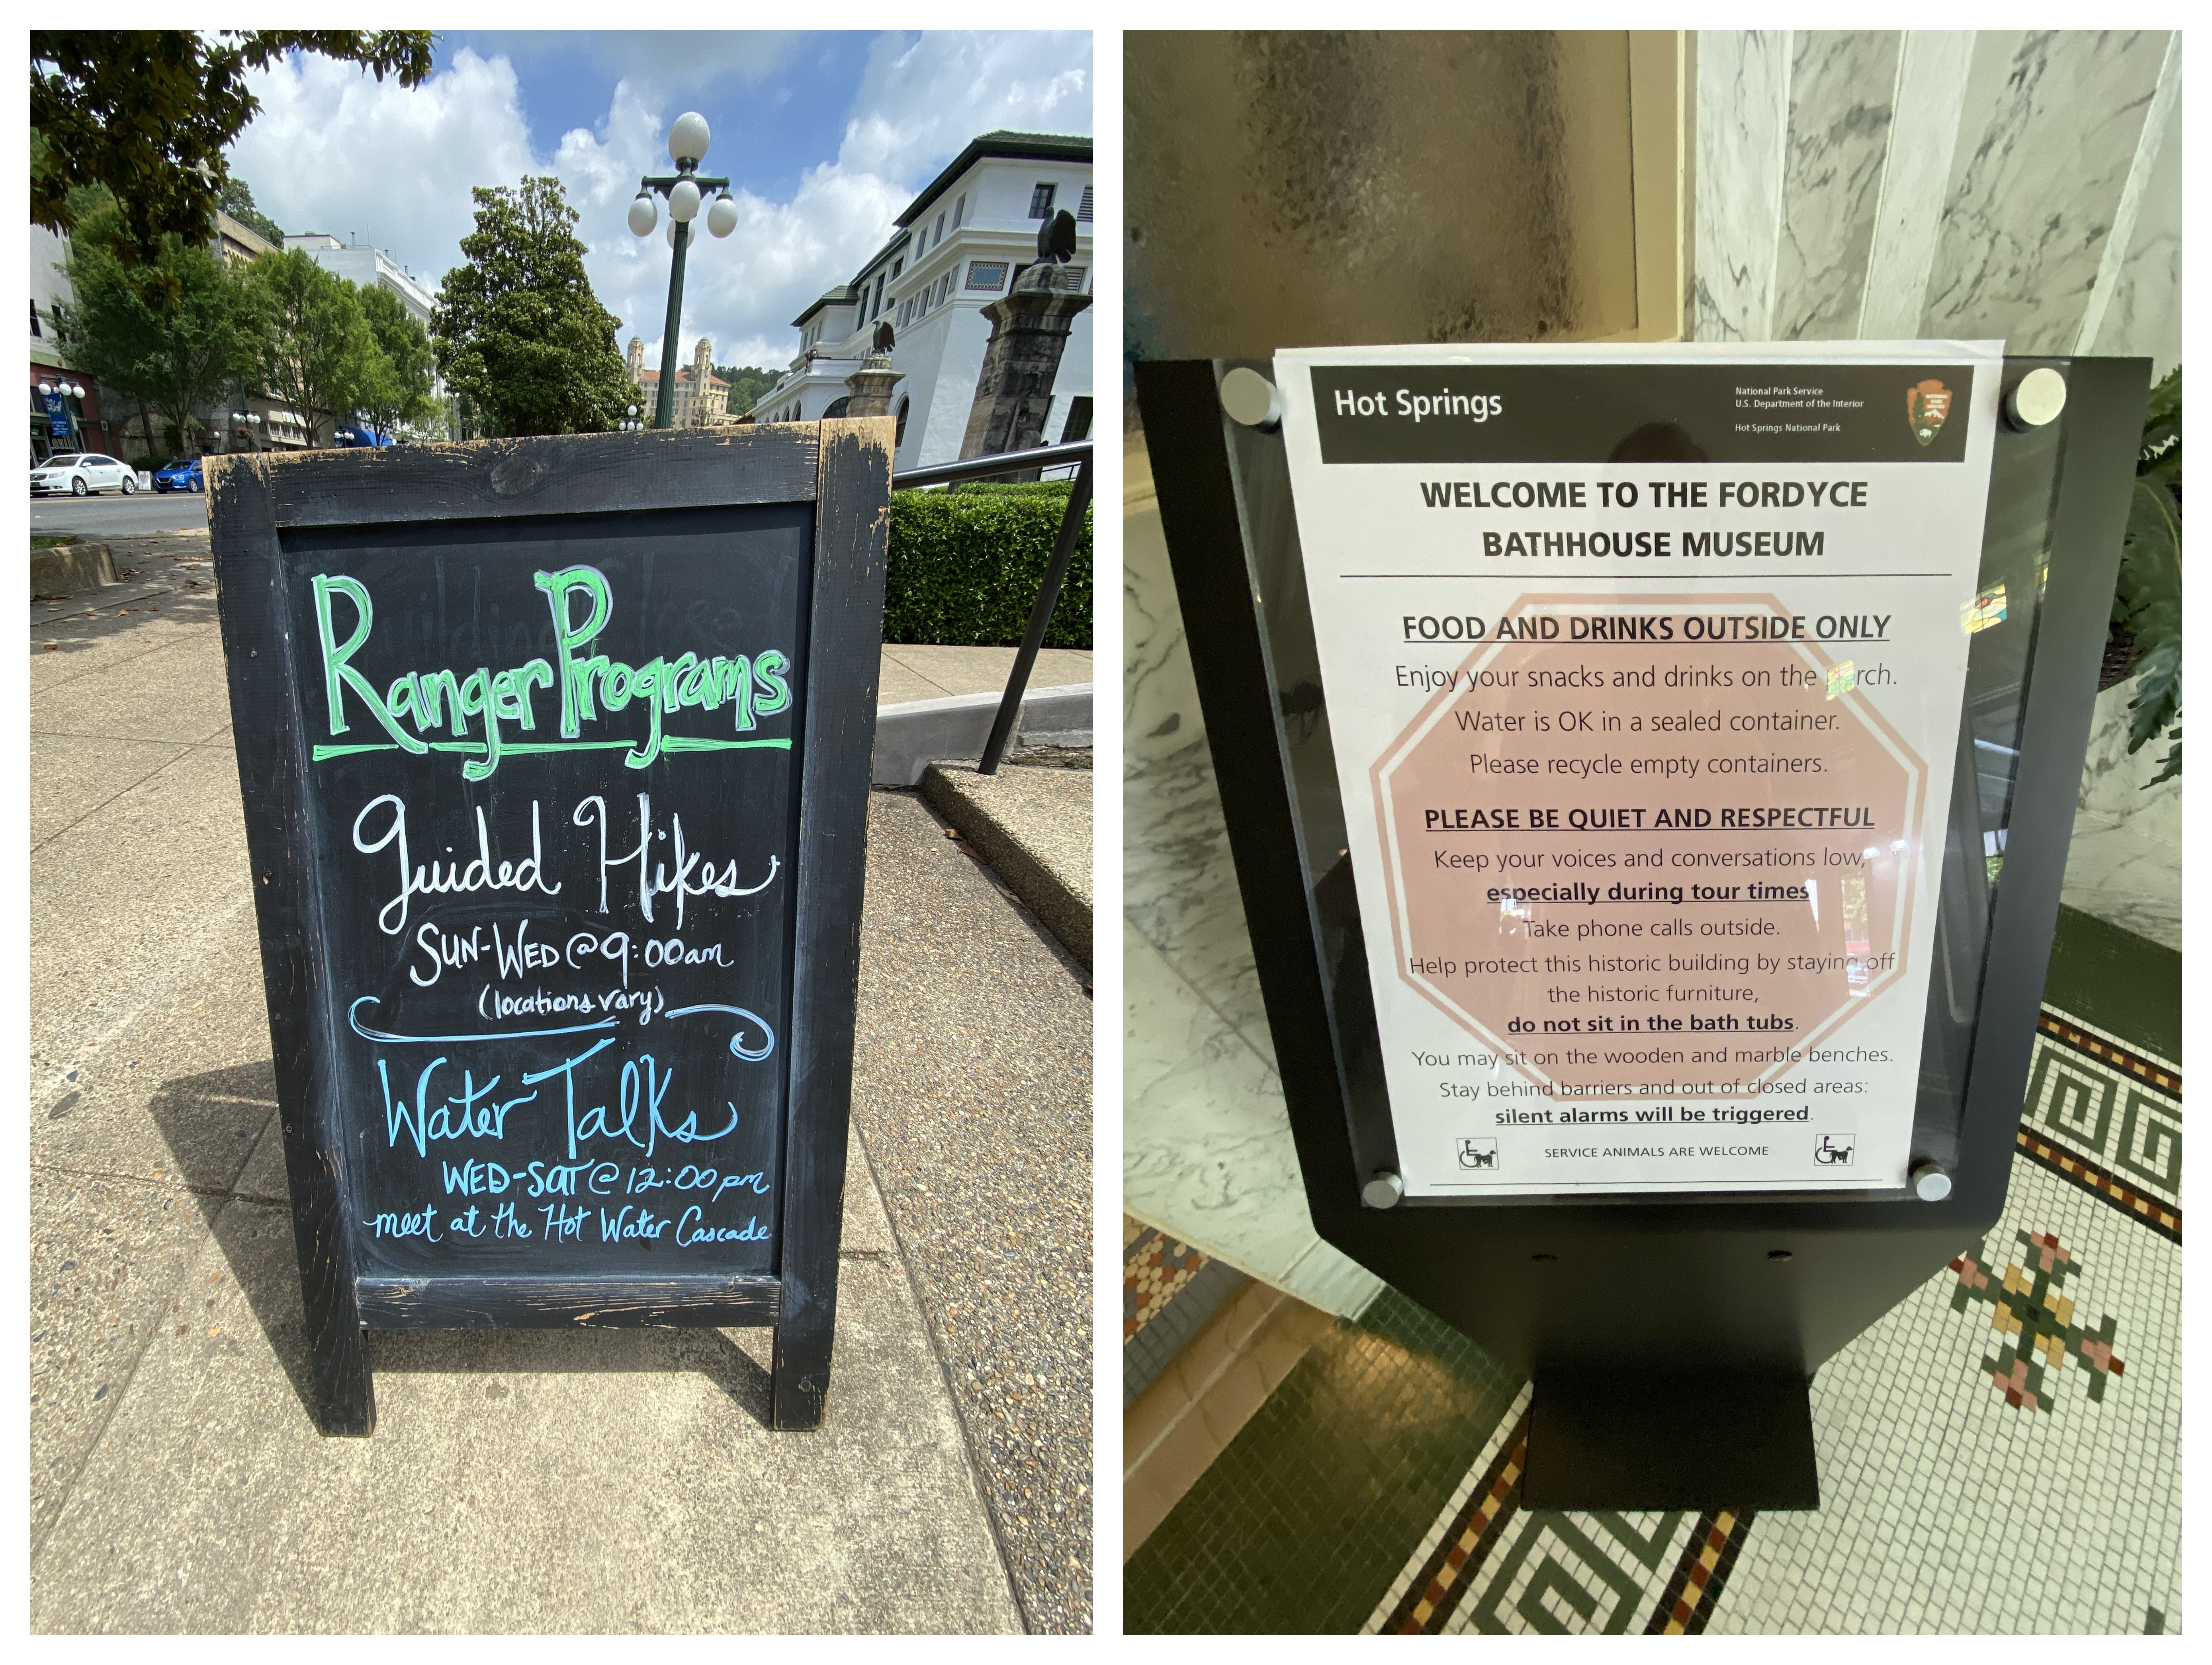 Ranger Programs
Guided Hikes
SUN-WED @ 9:00am
(locations vary)
Water Talks
WED-SAT @ 12:00pm
meet at the Hot Water Cascade
Hot Springs
National Park Service
U.S. Department of the Interior
Hot Springs National Park
WELCOME TO THE FORDYCE
BATHHOUSE MUSEUM
FOOD AND DRINKS OUTSIDE ONLY
Enjoy your snacks and drinks on the porch.
Water is OK in a sealed container.
Please recycle empty containers.
PLEASE BE QUIET AND RESPECTFUL
Keep your voices and conversations low,
especially during tour times
Take phone calls outside.
Help protect this historic building by staying off
the historic furniture,
do not sit in the bath tubs.
You may sit on the wooden and marble benches.
Stay behind barriers and out of closed areas:
silent alarms will be triggered.
SERVICE ANIMALS ARE WELCOME